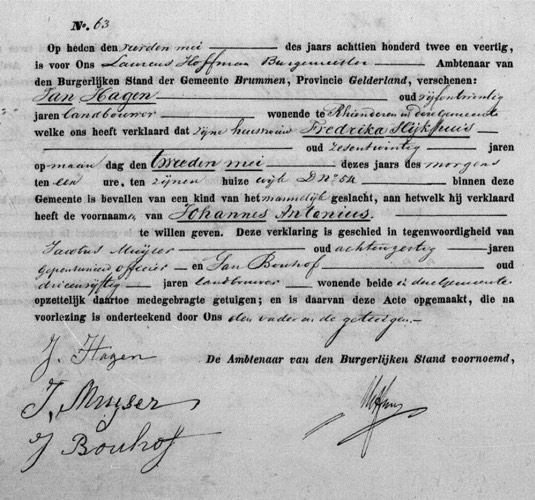 No. 63
Op heden den vierden mei des jaars achttien honderd twee en veertig,
is voor Ons Laurens Hoffman Burgemeester Ambtenaar van
den Burgerlijken Stand der Gemeente Brummen, Provincie Gelderland, verschenen:
Jan Hagen oud vijfentwintig
jaren landbouwer wonende te Rhienderen in deze Gemeente
welke ons heeft verklaard dat zijne huisvrouw Fredrika Slijkhuis
oud zesentwintig jaren
op maan dag den tweeden mei dezes jaars des morgens
ten een ure, ten zijnen huize wijk D no 54 binnen deze
Gemeente is bevallen van een kind van het mannelijk geslacht, aan hetwelk hij verklaard
heeft de voornaam van Johannes Antonius.
te willen geven. Deze verklaring is geschied in tegenwoordigheid van
Jacobus Muijser oud achtenzestig jaren
gepensioneerd officier en Jan Bouhof oud
drieenvijftig jaren landbouwer wonende beide in deze Gemeente
opzettelijk daartoe medegebragte getuigen; en is daarvan deze Acte opgemaakt, die na
voorlezing is onderteekend door Ons den vader en de getuigen.
J. Hagen
De Ambtenaar van den Burgerlijken Stand voornoemd,
J. Muyser
J Bouhof